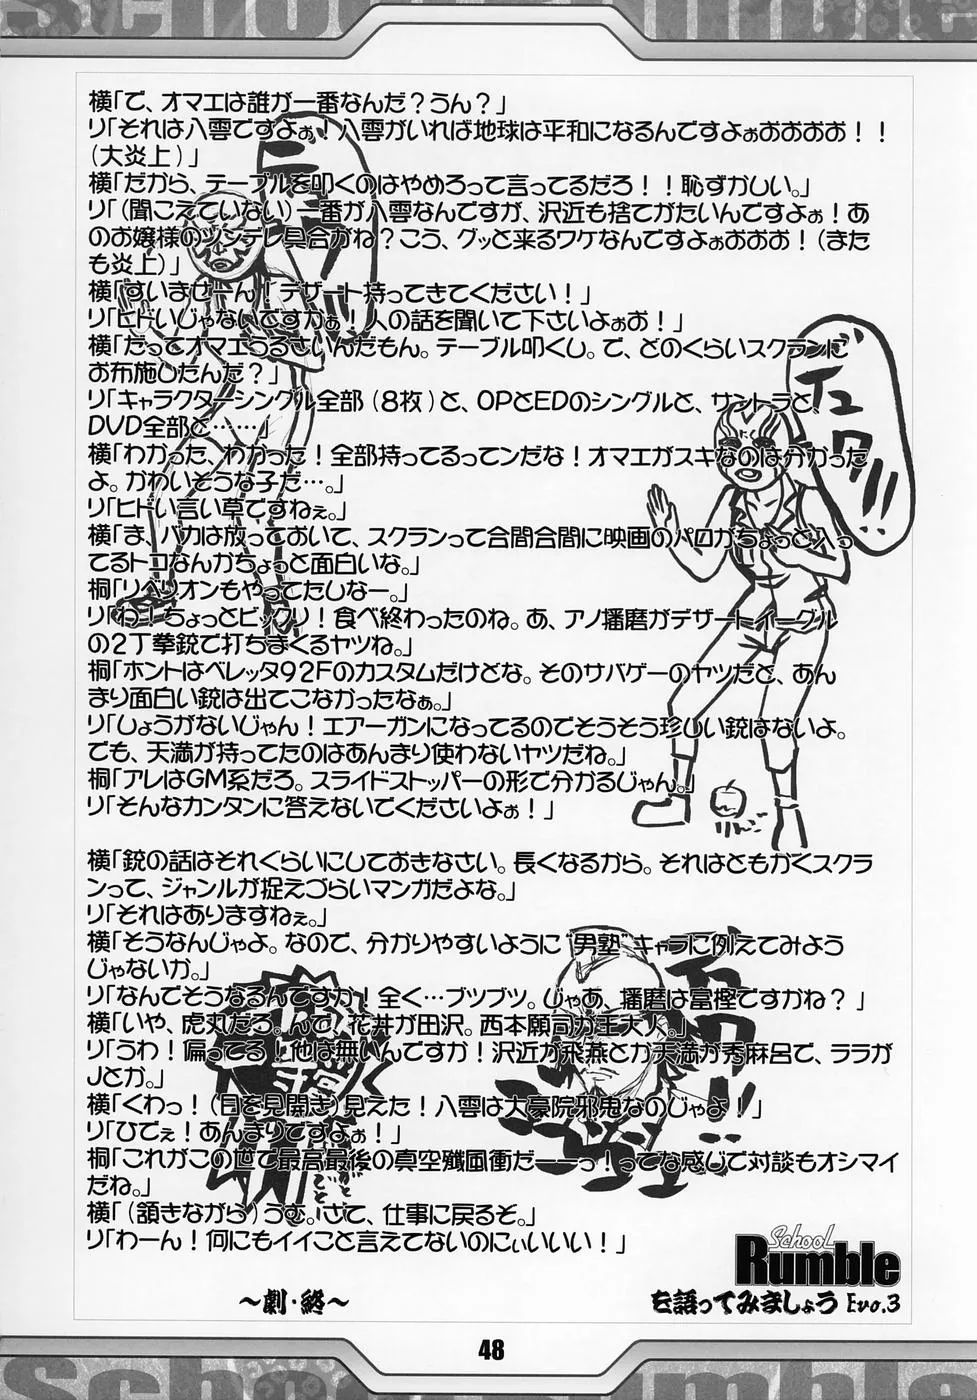 横「で、オマエは誰が一番なんだ？うん？」
リ「それは八雲ですよぉ！八雲がいれば地球は平和になるんですよぉおおおお！！
（大炎上）」
横「だから、テーブルを叩くのはやめろって言ってるだろ！！恥ずかしい。」
リ「（聞こえていない）一番が八雲なんですが、沢近も捨てがたいんですよぉ！あ
のお嬢様のツンデレ具合がね？こう、グッと来るワケなんですよぉおおお！（また
も炎上）」
横「すいませーん！デザート持ってきてください！」
リ「ヒドいじゃないですかぁ！人の話を聞いて下さいよぉお！」
横「だってオマエうるさいんだもん。テーブル叩くし。で、どのくらいスクランに
お布施したんだ？」
リ「キャラクターシングル全部（8枚）と、OPとEDのシングルと、サントラと、
DVD全部と……」
横「わかった、わかった！全部持ってるってンだな！オマエがスキなのは分かった
よ。かわいそうな子だ…。」
リ「ヒドい言い草ですねぇ。」
横「ま、バカは放っておいて、スクランって合間合間に映画のパロがちょっと入っ
てるトコなんかちょっと面白いな。」
桐「リベリオンもやってたしなー。」
リ「わ！ちょっとビックリ！食べ終わったのね。あ、アノ播磨がデザートイーグル
の2丁拳銃で打ちまくるヤツね。」
桐「ホントはベレッタ92Fのカスタムだけどな。そのサバゲーのヤツだと、あん
まり面白い銃は出てこなかったなぁ。」
リ「しょうがないじゃん！エアーガンになってるのでそうそう珍しい銃はないよ。
でも、天満が持ってたのはあんまり使わないヤツだね。」
桐「アレはGM系だろ。スライドストッパーの形で分かるじゃん。」
リ「そんなカンタンに答えないでくださいよぉ！」
横「銃の話はそれぐらいにしておきなさい。長くなるから。それはともかくスクラ
ンって、ジャンルが捉えづらいマンガだよな。」
リ「それはありますねぇ。」
横「そうなんじゃよ。なので、分かりやすいように“男塾”キャラに例えてみよう
じゃないか。」
リ「なんでそうなるんですか！全く…ブツブツ。じゃあ、播磨は富樫ですかね？」
横「いや、虎丸だろ。んで、花井が田沢。西本願司が王大人。」
リ「うわ！偏ってる！他は無いんですか！沢近が飛燕とか天満が秀麻呂で、ララが
Jとか。」
横「くわっ！（目を見開き）見えた！八雲は大豪院邪鬼なのじゃよ！」
リ「ひでぇ！あんまりですよぉ！」
桐「これがこの世で最高最後の真空殲風衝だーーっ！ってな感じで対談もオシマイ
だね。」
横「（頷きながら）うむ。さて、仕事に戻るぞ。」
リ「わーん！何にもイイこと言えてないのにぃいいい！」
りんご
School
Rumble
を語ってみましょう Evo.3
～劇・終～
48